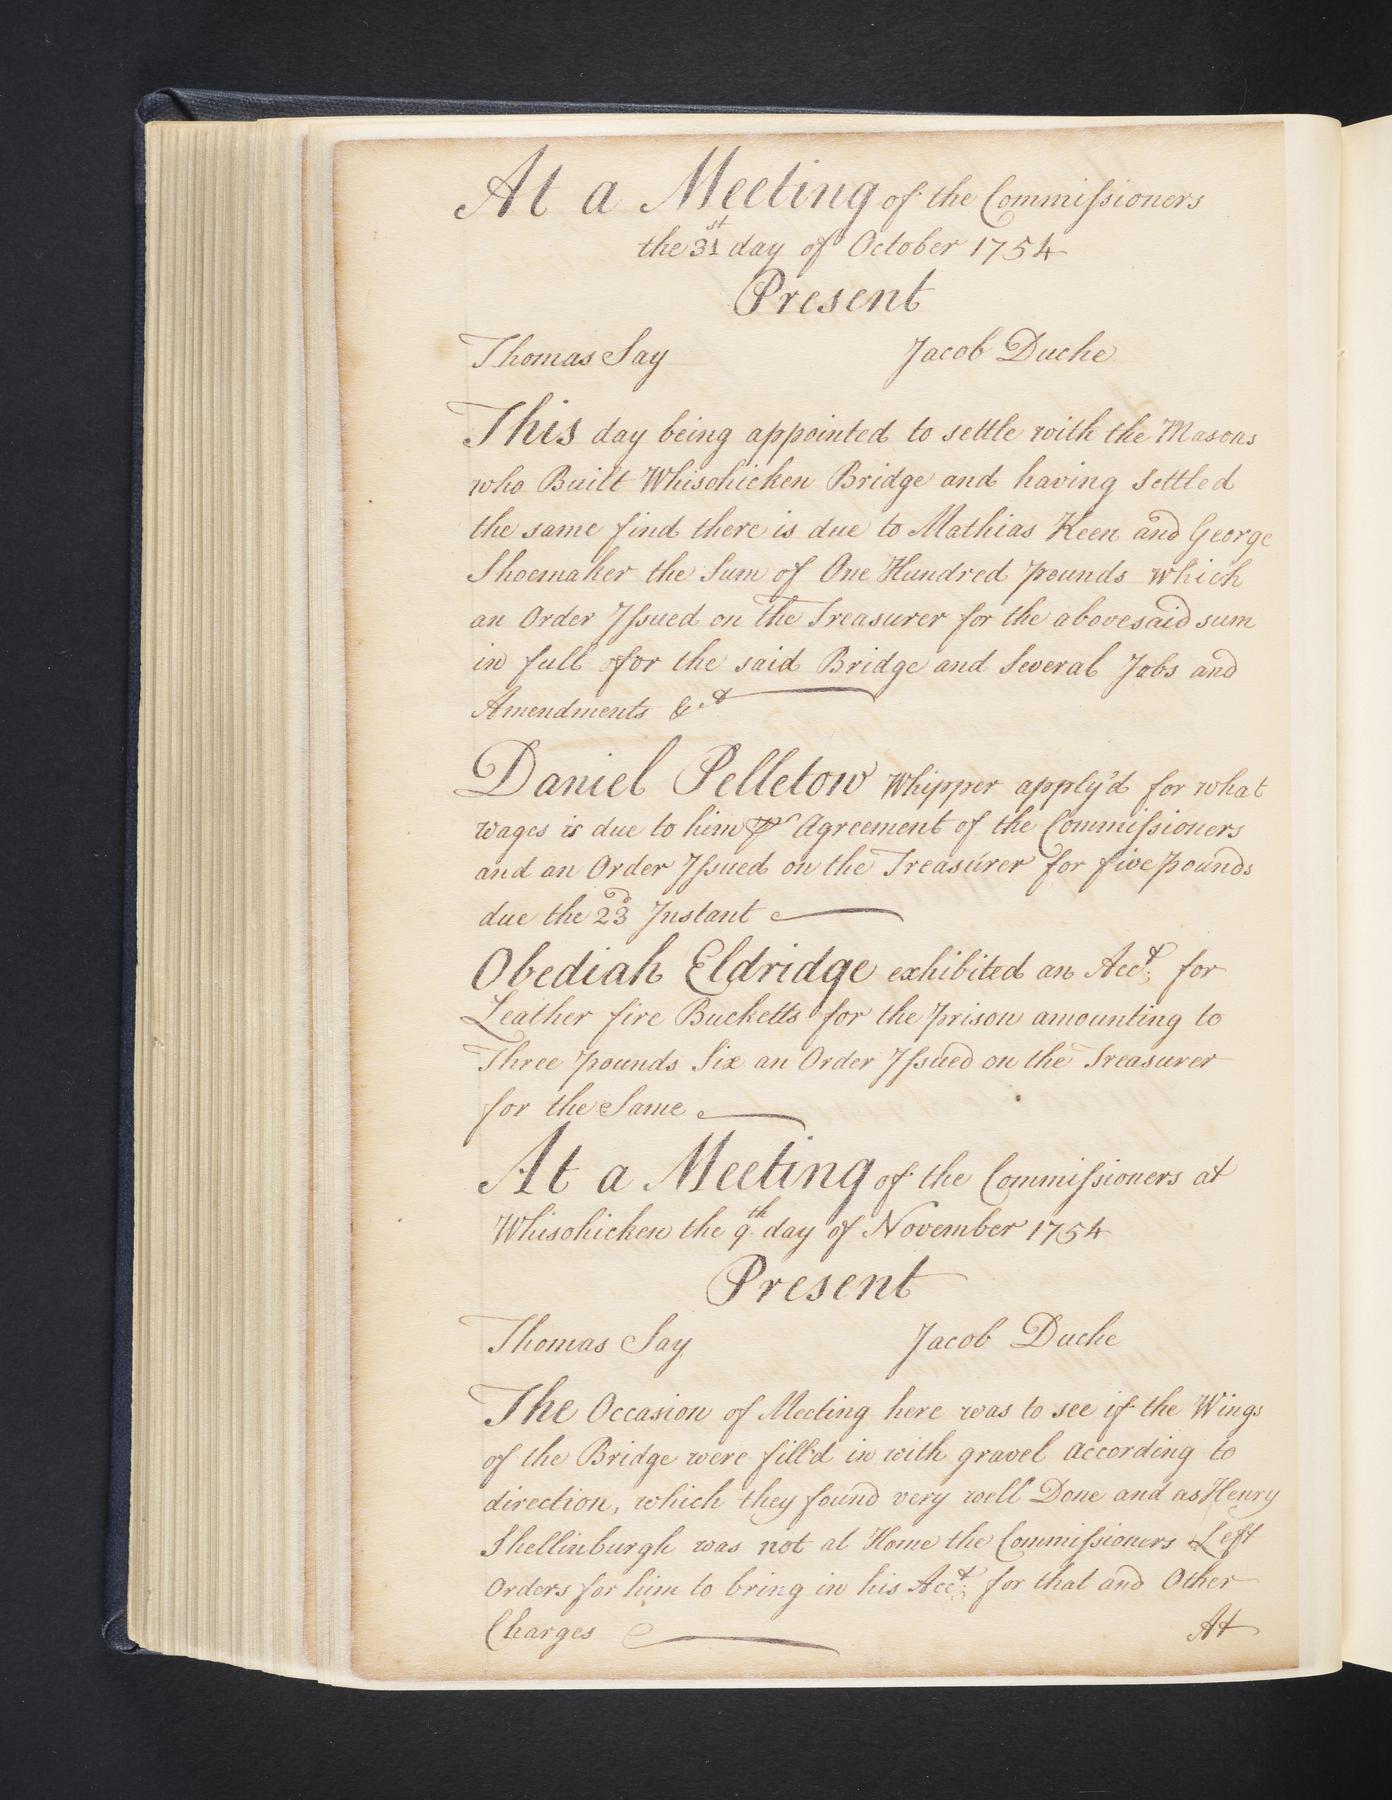 At a Meeting of the Commissioners
the 31st day of October 1754
Present
Thomas Say Jacob Duche
This day being appointed to settle with the Masons
who Built Whisohicken Bridge and having Settled
the same find there is due to Mathias Keen and George
Shoemaker the Sum of One Hundred pounds which
an Order Issued on the Treasurer for the abovesaid sum
in full for the said Bridge and Several Jobs and
Amendments &ca
Daniel Pelletow Whipper apply'd for what
wages is due to him pr Agreement of the Commissioners
and an Order Issued on the Treasurer for five pounds
due the 23d Instant
Obediah Eldridge exhibited an Acct. for
Leather fire Bucketts for the prison amounting to
Three pounds Six an Order Issued on the Treasurer
for the Same
At a Meeting of the Commissioners at
Whisohicken the 9th day of November 1754
Present
Thomas Say Jacob Duche
The Occasion of Meeting here was to see if the Wings
of the Bridge were fill'd in with gravel according to
direction, which they found very well Done and as Henry
Shellinburgh was not at Home the Commissioners Left
Orders for him to bring in his Acct. for that and Other
Charges At